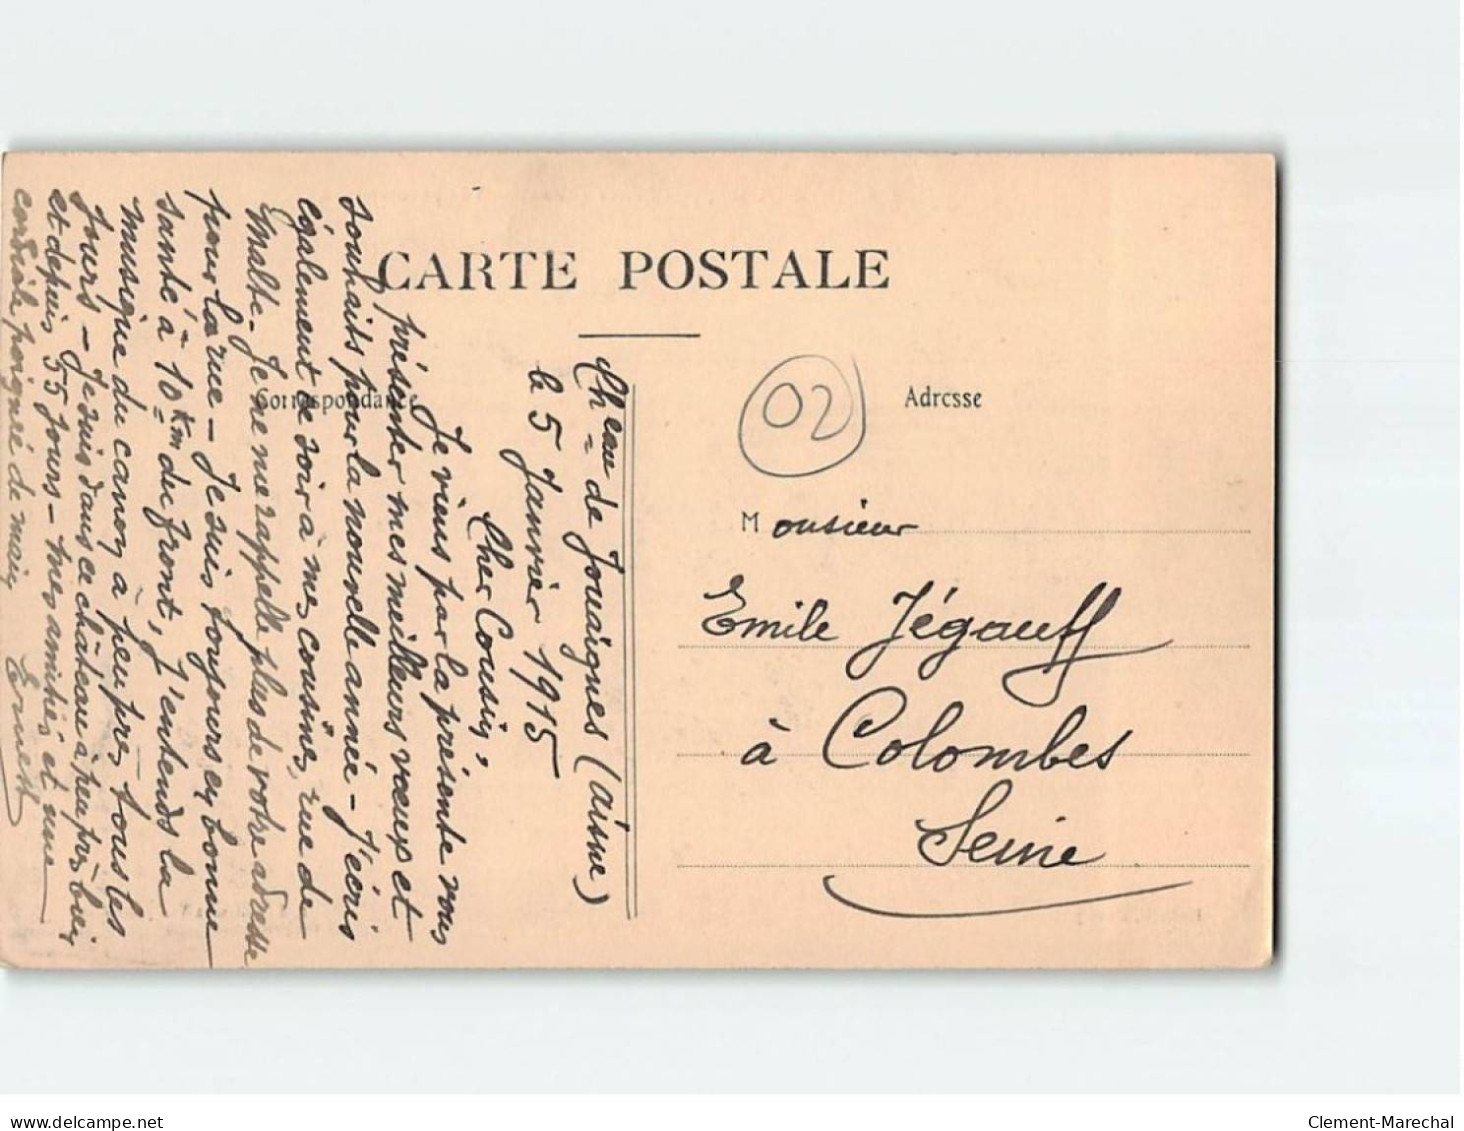 CARTE POSTALE
Correspondance
Adresse
02
Monsieur
Emile Jégauff
à Colombes
Seine
Cheau de Jouaignes (Aisne)
le 5 Janvier 1915
Cher Cousin,
Je viens par la présente vous
présenter mes meilleurs vœux et
souhaits pour la nouvelle année - J'écris
également ce soir à mes cousines, rue de
Malte. Je ne me rappelle plus de votre adresse
pour la rue - Je suis toujours en bonne
santé à 10 km du front, J'entends la
musique du canon à peu près tous les
Jours - Je suis dans ce château à peu près bien
et depuis 55 Jours - Mes amitiés et une
cordiale poignée de main
Ernest
delcampe.net
Clement-Marechal